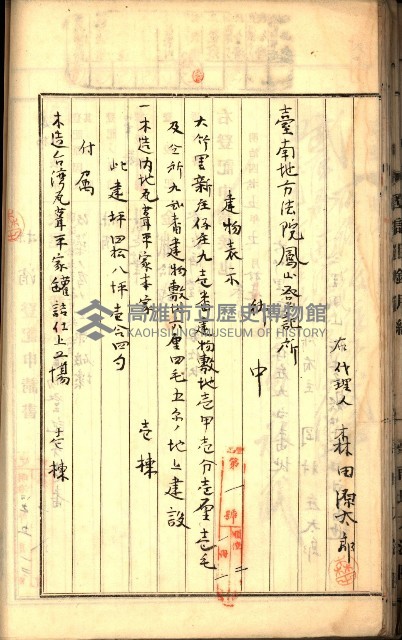 右代理人 森田源太郎
臺南地方法院鳳山登記所
御中
建物表示
大竹里新庄仔庄九壱番建物敷地壱甲壱分壱厘壱毛
及仝所九 番建物敷地六厘四毛五糸ノ地上建設
一木造内地瓦葺平家本家 壱棟
此建坪四拾八坪壱合四勺
付属
木造台湾瓦葺平家罐詰仕上工場 壱棟
高雄市立歷史博物館
KAOHSIUNG MUSEUM OF HISTORY
第一號